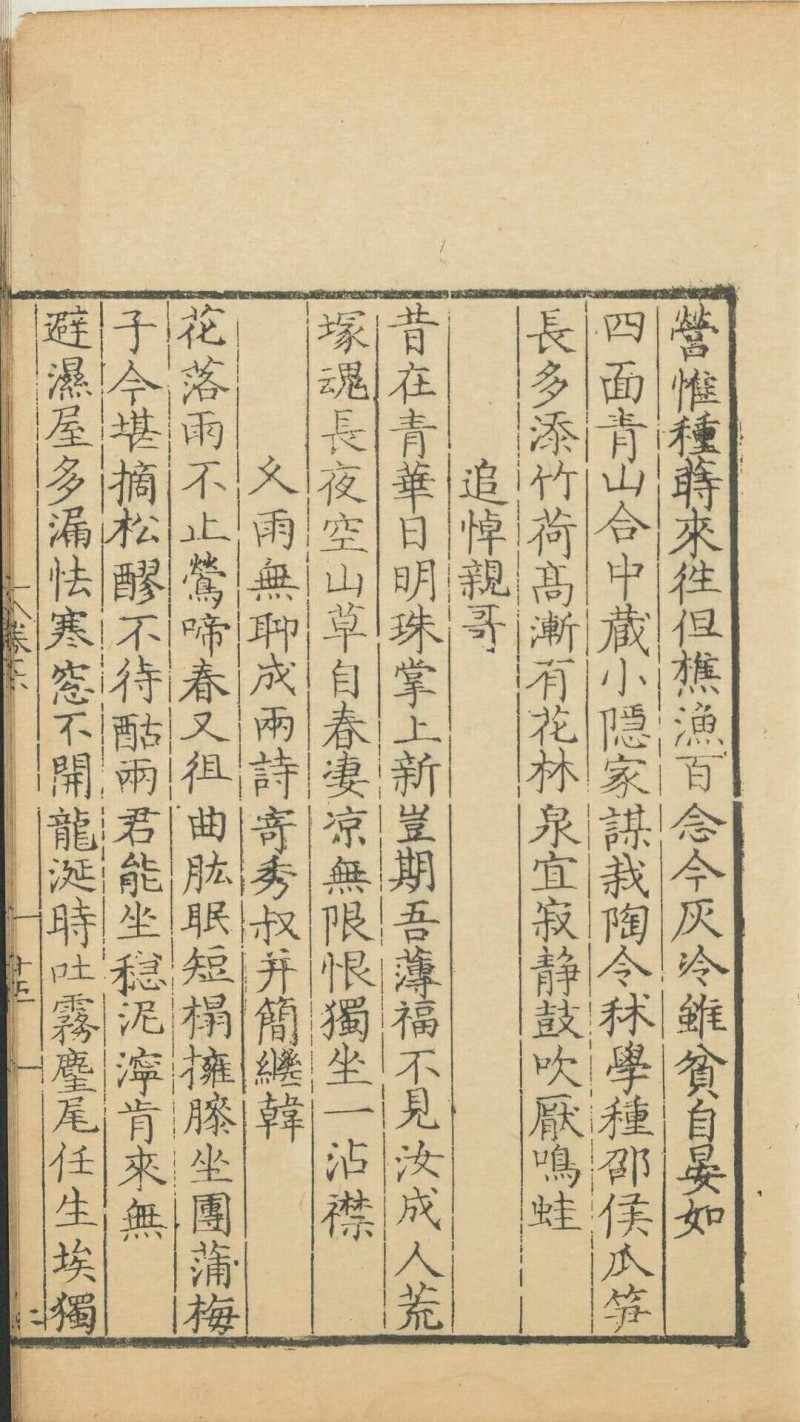 營惟種蒔來往但樵漁百念今灰冷雖貧自晏如
四面青山合中藏小隱家謀栽陶令秫學種邵侯瓜笋
長多添竹荷髙漸有花林泉宜寂静鼓吹厭鳴蛙
追悼親哥
昔在青華日明珠掌上新豈期吾薄福不見汝成人荒
塚魂長夜空山草自春凄凉無限恨獨坐一沾襟
久雨無聊成兩詩寄秀叔并簡繼韓
花落雨不止鶯啼春又徂曲肱眠短榻擁膝坐團蒲梅
子今堪摘松醪不待酤兩君能坐穏泥濘肯來無
避濕屋多漏怯寒窓不開龍涎時吐霧麈尾任生埃獨